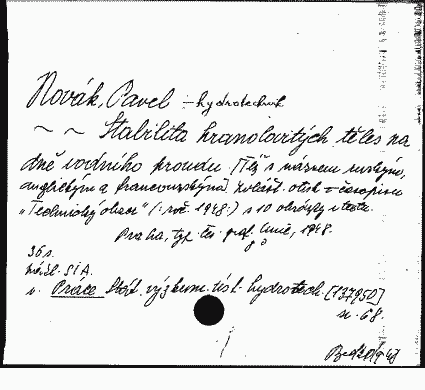 Novák, Pavel - hydrotechnik
~ ~ Stabilita hranolovitých těles na
dně vodního proudu. [Též s názvem ruským,
anglickým a francouzským. Zvlášt. otisk z časopisu
„Technický obzor" (: roč. 1948:) s 10 obrázky v textu.
Praha, typ. Čes. graf. Unie, 1948.
36 s.
SIA.
v. Práce Stát. výzkum. úst. hydrotech. [737950]
sv. 68.